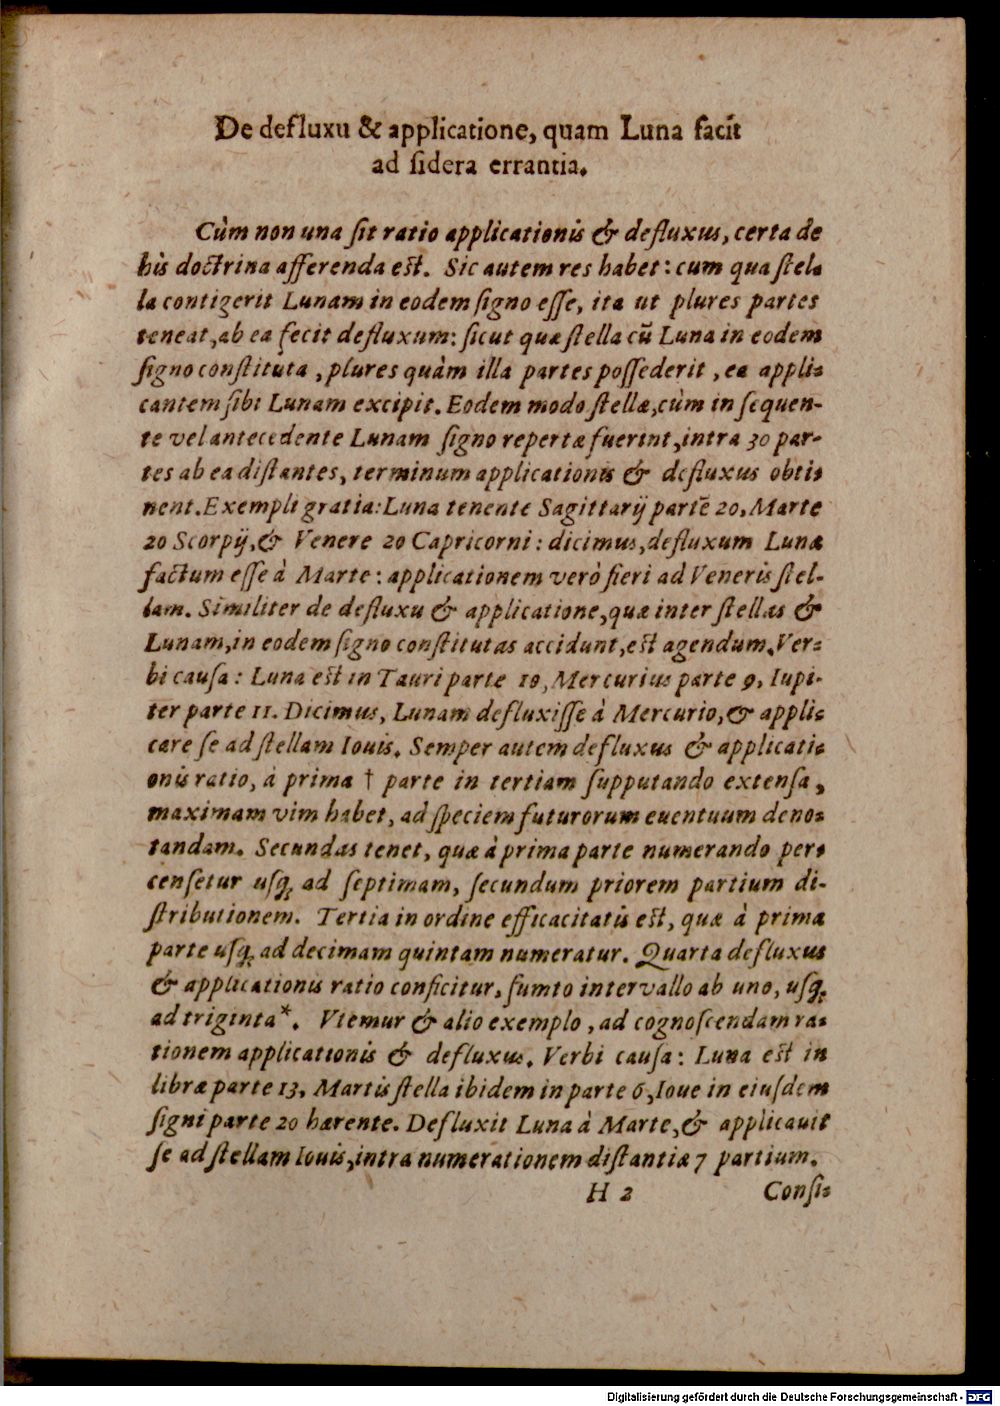 De defluxu & applicatione, quam Luna facit
ad ſidera errantia.
Cùm non una ſit ratio applicationis & defluxus, certa de
his doctrina afferenda est. Sic autem res habet: cum qua ſtel-
la contigerit Lunam in eodem ſigno eſſe, ita ut plures partes
teneat, ab ea fecit defluxum: ſicut quæ ſtella cū Luna in eodem
ſigno conſtituta, plures quàm illa partes poſſederit, ea appli-
cantem ſibi Lunam excipit. Eodem modo ſtellæ, cùm in ſequen-
te vel antecedente Lunam ſigno repertæ fuerint, intra 30 par-
tes ab ea diſtantes, terminum applicationis & defluxus obti-
nent. Exempli gratia: Luna tenente Sagittarij partē 20, Marte
20 Scorpij, & Venere 20 Capricorni: dicimus, defluxum Lunæ
factum eſſe à Marte: applicationem verò fieri ad Veneris ſtel-
lam. Similiter de defluxu & applicatione, quæ inter ſtellas &
Lunam, in eodem ſigno conſtitutas accidunt, est agendum. Ver-
bi cauſa: Luna est in Tauri parte 10, Mercurius parte 9, Iupi-
ter parte 11. Dicimus, Lunam defluxiſſe à Mercurio, & appli-
care ſe ad ſtellam Iouis. Semper autem defluxus & applicati-
onis ratio, à prima † parte in tertiam ſupputando extenſa,
maximam vim habet, ad ſpeciem futurorum euentuum deno-
tandam. Secundas tenet, quæ à prima parte numerando per-
cenſetur uſq; ad ſeptimam, ſecundum priorem partium di-
ſtributionem. Tertia in ordine efficacitatis est, quæ à prima
parte uſq; ad decimam quintam numeratur. Quarta defluxus
& applicationis ratio conficitur, ſumto intervallo ab uno, uſq;
ad triginta*. Vtemur & alio exemplo, ad cognoſcendam ra-
tionem applicationis & defluxus. Verbi cauſa: Luna est in
libræ parte 13, Martis ſtella ibidem in parte 6, Ioue in eiuſdem
ſigni parte 20 hærente. Defluxit Luna à Marte, & applicauit
ſe ad ſtellam Iouis, intra numerationem diſtantiæ 7 partium.
H 2 Conſi-
Digitalisierung gefördert durch die Deutsche Forschungsgemeinschaft - DFG